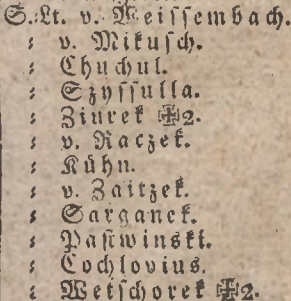 S.Lt. v. Meissembach.
: v. Mikusch.
: Chuchul.
: Szyssulla.
: Ziurek ✠2.
: v. Raczek.
: Kühn.
: v. Zaitzek.
: Sarganck.
: Pastwinski.
: Cochlovius.
: Wetschorek ✠2.